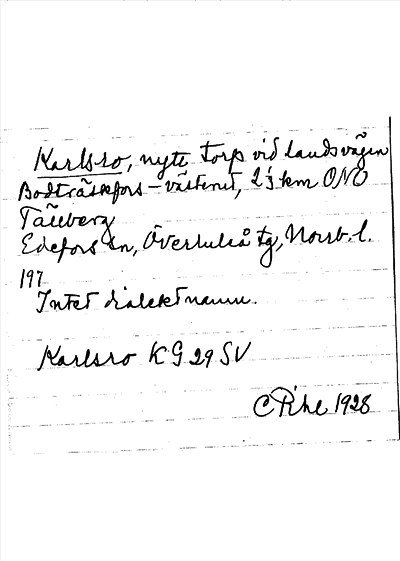 Karlsro, nytt torp vid landsvägen
Bodträskfors – västerut, 2½ km ONO
Tallberg
Edefors sn, Överluleå tg, Norrb. l.
197
Intet dialektnamn.
Karlsro KG 29 SV
1928